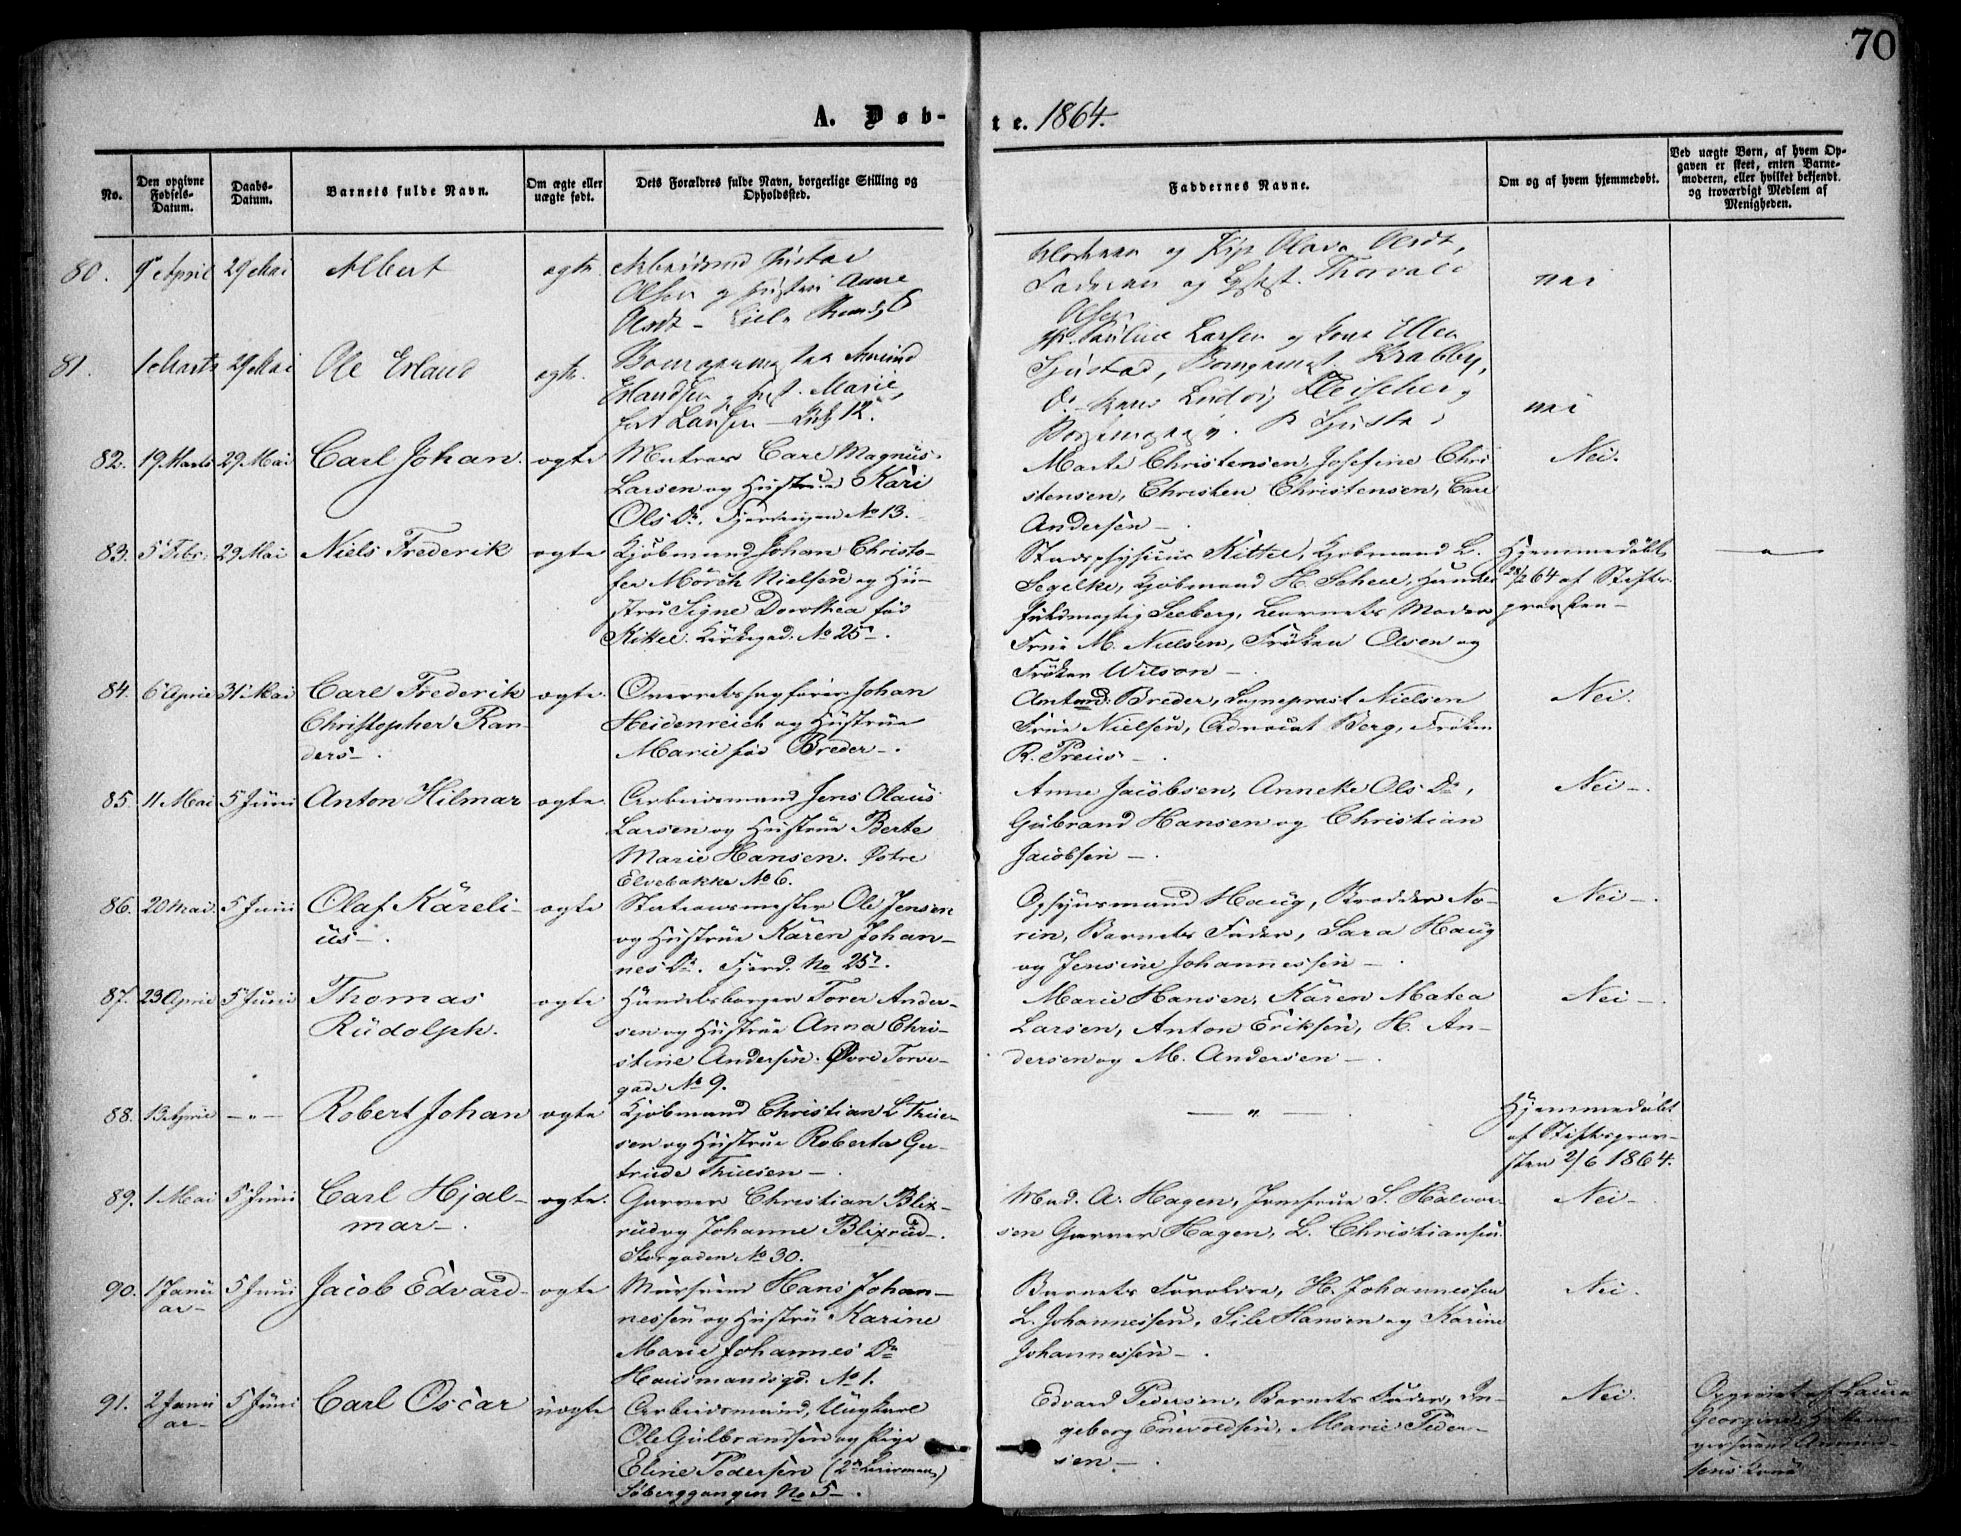 70
A. Døb-
te. 1864.
No.
Den opgivne Fødsels-Datum.
Daabs-Datum.
Barnets fulde Navn.
Om ægte eller uægte født.
Dets Forældres fulde Navn, borgerlige Stilling og Opholdssted.
Faddernes Navne.
Om og af hvem hjemmedøbt.
Ved uægte Børn, af hvem Opgaven er skeet, enten Barnemoderen, eller hvilket bekjendt. og troværdigt Medlem af Menigheden.
80. 9 April 29 Mai Albert ægte Arbeidsmd Gustav
Olsen g Hustru Anne
Olsdt
Olava Olsdt,
Thorvald
Olsen
nei
81. 1 Marts 29 Mai Ole Erland ægte.
Erlandsen g Hust. Marie
født Larsen No 12.
Pauline Larsen g Ellen
Krabby,
Ludvig
nei
82. 19 Marts 29 Mai Carl Johan. ægte Matros Carl Magnus
Larsen og Hustrue Kari
Ols Dr. Fjerdingen No 13.
Marte Christensen, Josefine Chri
stensen, Christen Christensen, Carl
Andersen —
Nei.
83. 5 Febr. 29 Mai Niels Frederik ægte Kjøbmand Johan Christo-
fer Mörch Nielsen og Hu-
stru Signe Dorothea fød
Kittel. Kirkegad. No 25.
Stadsphysicus Kittel, Kjøbmand L.
Segelke, Kjøbmand H. Schee,
fuldmægtig Seeberg, Barnets Moder
Frue M. Nielsen, Frøken Olsen og
Frøken Wilson —
Hjemmedøbt
28/2 64 af Stifts-
provsten —
— " —
84. 6 April 31 Mai Carl Frederik
Christopher Ran-
ders —.
ægte. Overretssagfører Johan
Heidenreich og Hustrue
Marie fød Breder —.
Breder, Sogneprest Nielsen
Frue Nielsen, Advocat Berg, Frøken
R. Preus —.
Nei.
85. 11 Mai 5 Juni Anton Hilmar ægte. Arbeidsmand Jens Olaus
Larsen og Hustrue Berte
Marie Hansen. Østre
Elvebakke No 6.
Anne Jacobsen, Anneke Ols Dr,
Gulbrand Hansen og Christian
Jacobsen —.
Nei —.
86. 20 Mai. 5 Juni Olaf Kareli-
us —.
ægte Stationsmester Ole Jensen
og Hustrue Karen Johan-
nes Dr. Fjerd. No 25.
Opsynsmand Haug, No-
rin, Barnets Fader, Sara Haug
og Jensine Johannessen —.
Nei —.
87. 23 April 5 Juni Thomas
Rudolph.
ægte Handelsborger Torer Ander-
sen og Hustrue Anna Chri-
stine Andersen. Øvre Torve-
gade No 9.
Marie Hansen, Karen Matea
Larsen, Anton Eriksen, H. An-
dersen og M. Andersen —.
Nei —.
88. 13 April — " — Robert Johan ægte Kjøbmand Christian L Thue-
sen og Hustrue Roberta Ger-
trude Thuesen —.
— " —
Hjemmedøbt
af Stiftsprov-
sten 2/6 1864.
89. 1 Mai 5 Juni Carl Hjal-
mar —.
ægte. Garver Christian Blix-
rud og Johanne Blixrud —.
Storgaden No 30.
Mad. A. Hagen, Jomfrue S. Halvor-
sen Garver Hagen, L. Christiansen.
Nei —.
90. 1 Janu
ar —
5 Juni Jacob Edvard — ægte Mursvend Hans Johan-
nessen og Hustru Karine
Marie Johannes Dr
Hausmandsgd. No 1.
Barnets Forældre, H. Johannessen
L. Johannessen, Sile Hansen og Karine
Johannessen —.
Nei.
91. 2 Janu
ar —
5 Juni Carl Oscar uægte Arbeidsmand, Ungkarl
Ole Gulbrandsen og Pige
Eline Pedersen (2det Leiermaal)
Søberggangen No 5 —.
Edvard Pedersen, Barnets Fader, In-
geborg Enevoldsen, Marie Peder-
sen —.
Nei.
Opgivet af Laura
Georgine